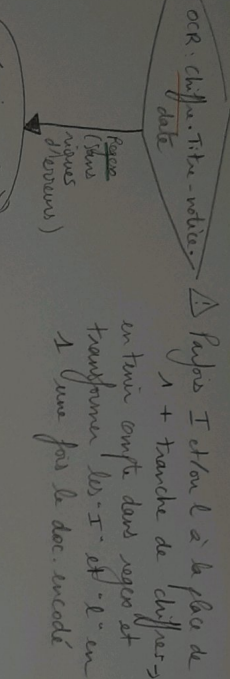 OCR : Chiffre. Titre - notice.
date
Regex
(sans
risques
d'erreurs)
⚠ Parfois I et/ou l à la place de
1 + tranche de chiffres →
en tenir compte dans regex et
transformer les "I" et "l" en
1 une fois le doc. encodé